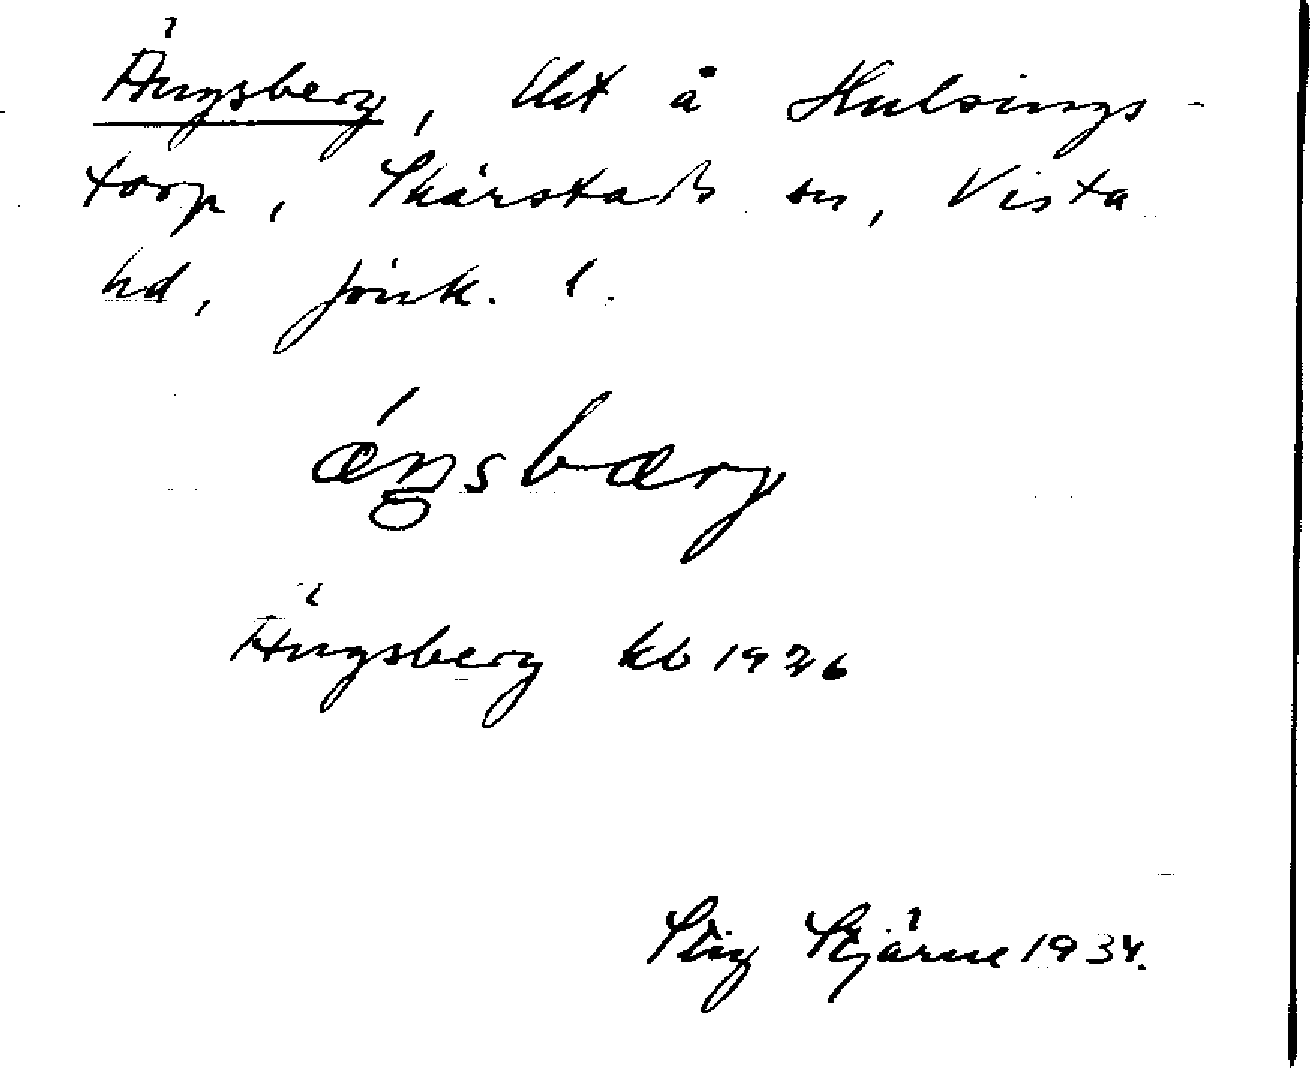 Ängsberg, lht å Hulsings-
torp, Skärstads sn, Vista
hd, Jönk. l.
ǽŋsbærg
Ängsberg kb 1926
Stig Stjärne 1934.